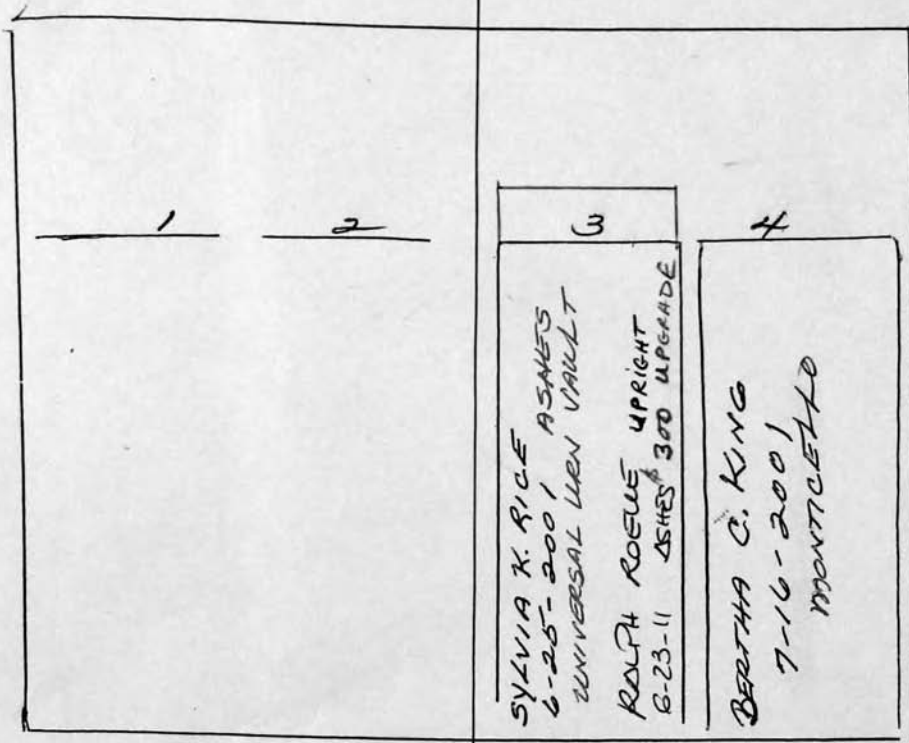 1
2
3
4
SYLVIA K. RICE
6-25-2001 ASAHES
UNIVERSAL URN VAULT
RALPH UPRIGHT
6-23-11 ASHES $300 UPGRADE
BERTHA C. KING
7-16-2001
MONTICELLO